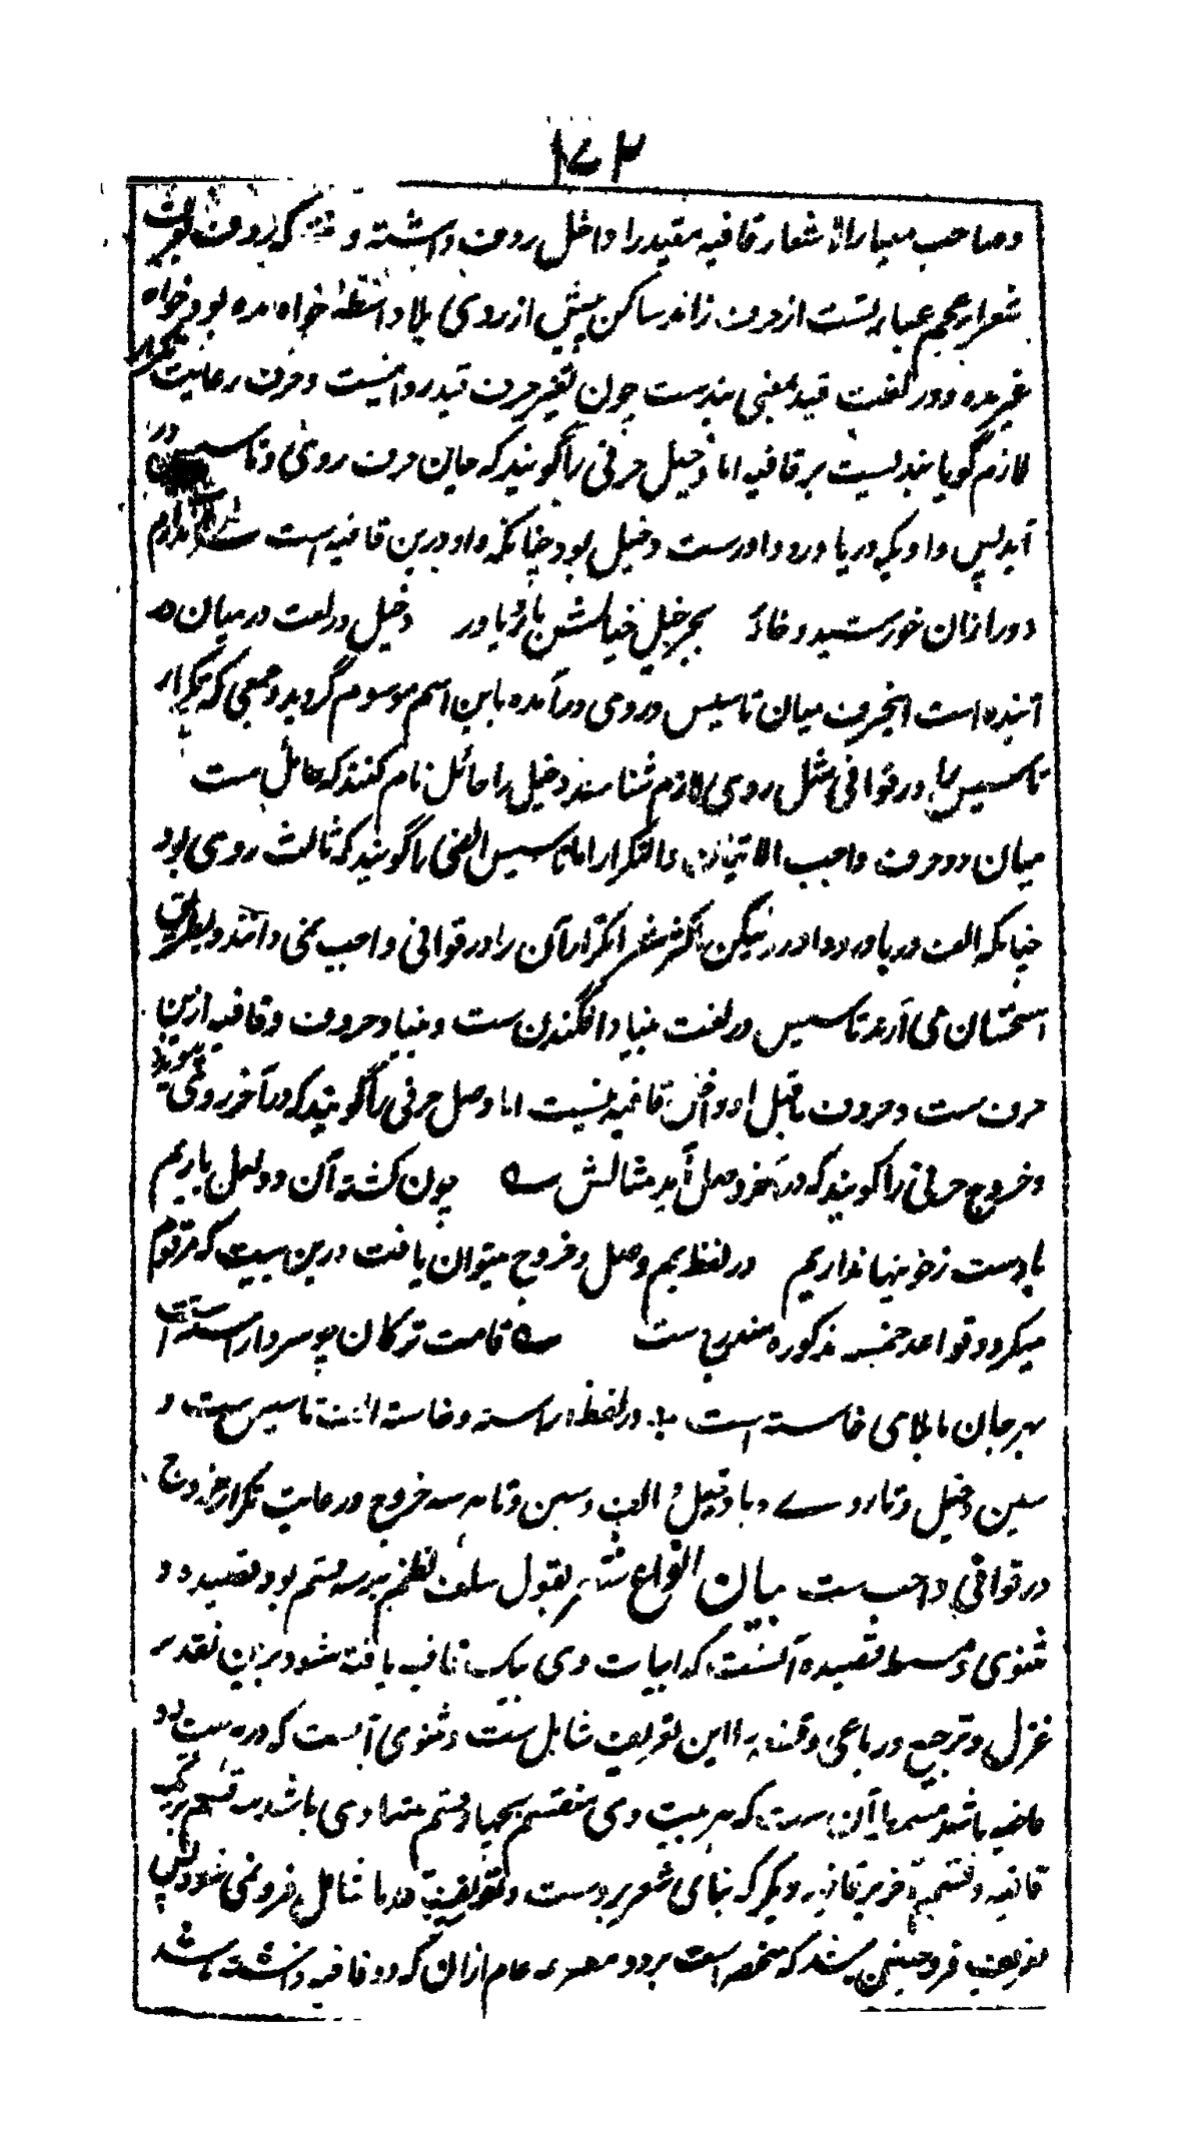 ۱۷۲
و صاحب معیار الاشعار قافیه مقید را داخل ردف داشته و گفته که ردف بعرف
شعرای عجم عبارتست از حرف زائد ساکن پیش از روی بلا واسطه خواه مده بود خواه
غیر مده و در لغت قید بمعنی بندست چون تغیر حرف قید روا نیست و حرف رعایت تکرار
لازم گویا بندیست بر قافیه اما دخیل حرفی را گویند که میان حرف روی و تاسیس در
آید پس واویکه در یاور و داورست دخیل بود چنانکه واو درین قافیه است
دور ازان خورشید رخا بجز خیل خیالش یار و یاور دخیل در لغت در میان در
آینده است اینحرف میان تاسیس و روی درآمده باین اسم موسوم گردید و جمعی که تکرار
تاسیس را در قوافی مثل روی لازم شناسند دخیل را حائل نام کنند که حائل ست
میان دو حرف واجب الاتیان والتکرار اما تاسیس الفی را گویند که ثالث روی بود
چنانکه الف در یاور و داور لیکن اکثر شعرا تکرار آن را در قوافی واجب نمی دانند و بطریق
استحسان می آرند تاسیس در لغت بنیاد افگندن ست و بنیاد حروف و قافیه ازین
حرف ست و حروف ماقبل او داخل قافیه نیست اما وصل حرفی را گویند که در آخر روی پیوندد
و خروج حرفی را گویند که در آخر وصل آید مثالش چون کشته آن دو لعل باریم
پا دست ز خونبها نداریم در لفظ یم وصل و خروج میتوان یافت درین بیت که مرقوم
میگردد قواعد خمسه مذکوره مندرج ست قامت ترکان چو سرو آراسته است
بهر جان ما بلای خاسته است در لفظ آراسته و خاسته الف تاسیس ست و
سین دخیل و تا روی و ها وصل و الف و سین و تا هر سه خروج و رعایت تکرار خروج
در قوافی واجب ست بیان انواع شعر بقول سلف نظم بر سه قسم بود قصیده و
مثنوی و مسمط قصیده آنست که ابیات وی بیک قافیه یافته شود برین تقدیر
غزل و ترجیع و رباعی و قطعه را این تعریف شامل ست و مثنوی آنست که در هر بیت دو
قافیه باشد مسمط آن ست که هر بیت وی منقسم بچهار قسم متساوی باشد سه قسم بر یک
قافیه و قسمی آخر بر قافیه دیگر که بنای شعر بروست و تعریف هر ما شامل فرد نمی شود پس
تعریف فرد چنین بستند که منحصر است بر دو مصرعه عام ازان که دو قافیه داشته باشد